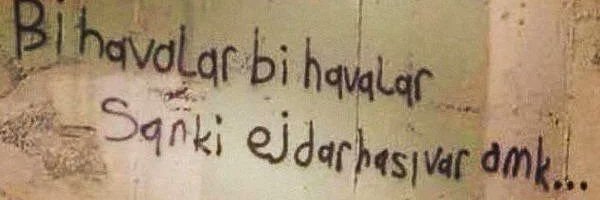 Bi havalar bi havalar
Sanki ejdarhası var amk...